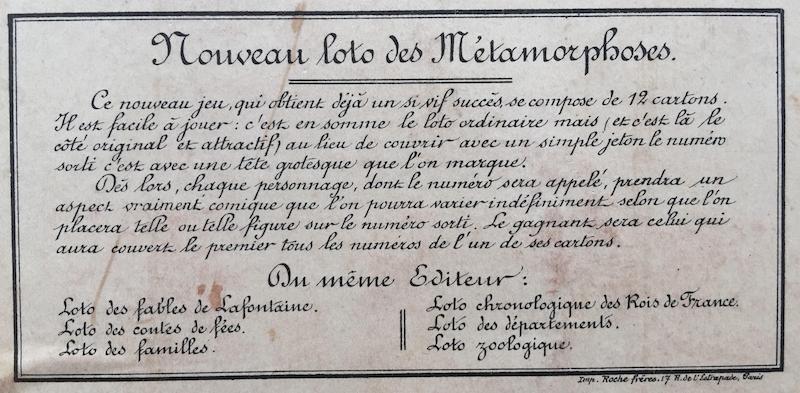 Nouveau loto des Métamorphoses.
Ce nouveau jeu, qui obtient déjà un si vif succès, se compose de 12 cartons.
Il est facile à jouer : c'est en somme le loto ordinaire mais (et c'est là le
côté original et attractif) au lieu de couvrir avec un simple jeton le numéro
sorti c'est avec une tête grotesque que l'on marque.
Dès lors, chaque personnage, dont le numéro sera appelé, prendra un
aspect vraiment comique que l'on pourra varier indéfiniment selon que l'on
placera telle ou telle figure sur le numéro sorti. Le gagnant sera celui qui
aura couvert le premier tous les numéros de l'un de ses cartons.
Du même Editeur :
Loto des fables de Lafontaine.
Loto des contes de fées.
Loto des familles.
Loto chronologique des Rois de France.
Loto des départements.
Loto zoologique.
Imp. Roche frères. 17 R. de l'Estrapade, Paris